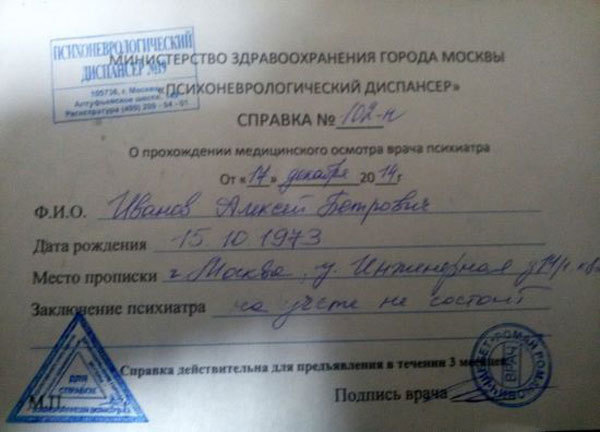 ПСИХОНЕВРОЛОГИЧЕСКИЙ
ДИСПАНСЕР №19
105736, г. Москва
Алтуфьевское шоссе,
Регистратура (499) 209 - 54 - 01
МИНИСТЕРСТВО ЗДРАВООХРАНЕНИЯ ГОРОДА МОСКВЫ
«ПСИХОНЕВРОЛОГИЧЕСКИЙ ДИСПАНСЕР»
СПРАВКА № 102-н
О прохождении медицинского осмотра врача психиатра
От «17» декабря 2014г.
Ф.И.О. Иванов Алексей Петрович
Дата рождения 15 10 1973
Место прописки г. Москва, у. Инженерная
Заключение психиатра на учете не состоит
Справка действительна для предъявления в течении 3 месяцев
ДЛЯ
СПРАВОК
М.П.
Подпись врача
ВРАЧ